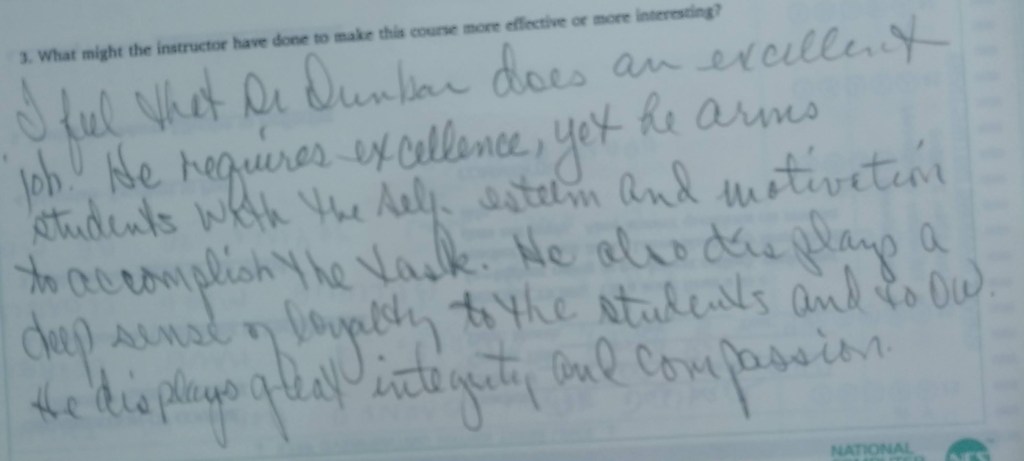 3. What might the instructor have done to make this course more effective or more interesting?
I feel that Dr Dunbar does an excellent
job. He requires excellence, yet he arms
students with the self-esteem and motivation
to accomplish the task. He also displays a
deep sense of loyalty to the students and to OU.
He displays great integrity and compassion.
NATIONAL
COMPUTER
NCS